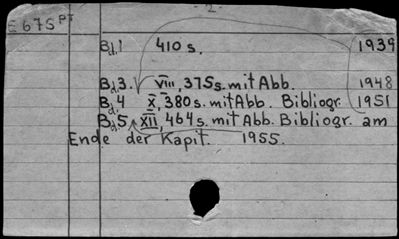 - 2. -
E 675 PT
Bd.1 410 s. 1939
Bd.3. VIII, 375s. mit Abb. 1948
Bd.4 X, 380s. mit Abb. Bibliogr. 1951
Bd.5 XII, 464s. mit Abb. Bibliogr. am
Ende der Kapit. 1955.